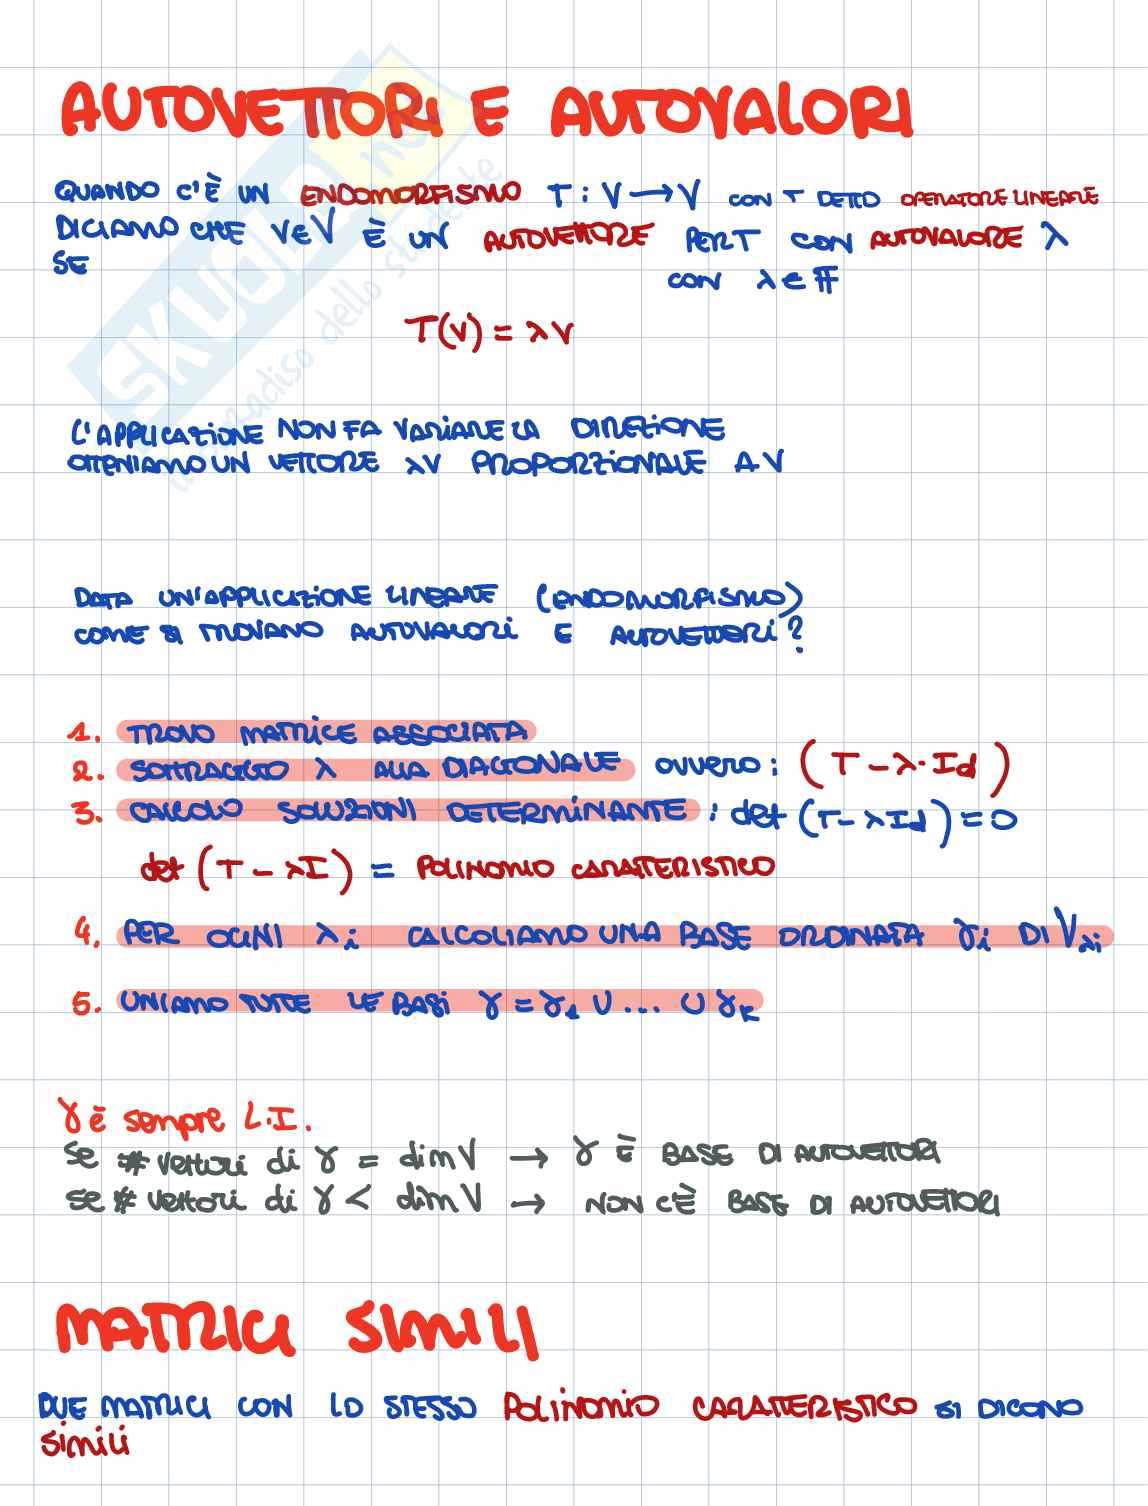 AUTOVETTORI E AUTOVALORI
QUANDO C'È UN ENDOMORFISMO T : V → V CON T DETTO OPERATORE LINEARE
DICIAMO CHE V ∈ V È UN AUTOVETTORE PER T CON AUTOVALORE λ
SE CON λ ∈ F
T(V) = λV
L'APPLICAZIONE NON FA VARIARE LA DIREZIONE
OTTENIAMO UN VETTORE λV PROPORZIONALE A V
DATA UN'APPLICAZIONE LINEARE (ENDOMORFISMO)
COME SI TROVANO AUTOVALORI E AUTOVETTORI?
1. TROVO MATRICE ASSOCIATA
2. SOTTRAGGO λ ALLA DIAGONALE OVVERO : (T - λ · Id)
3. CALCOLO SOLUZIONI DETERMINANTE : det (T - λ Id) = 0
det (T - λI) = POLINOMIO CARATTERISTICO
4. PER OGNI λi CALCOLIAMO UNA BASE ORDINATA γi DI Vλi
5. UNIAMO TUTTE LE BASI γ = γ1 ∪ ... ∪ γk
γ è sempre L.I.
Se # vettori di γ = dim V → γ È BASE DI AUTOVETTORI
Se # vettori di γ < dim V → NON C'È BASE DI AUTOVETTORI
MATRICI SIMILI
DUE MATRICI CON LO STESSO POLINOMIO CARATTERISTICO SI DICONO
simili
SKUOLA.net
il paradiso dello studente